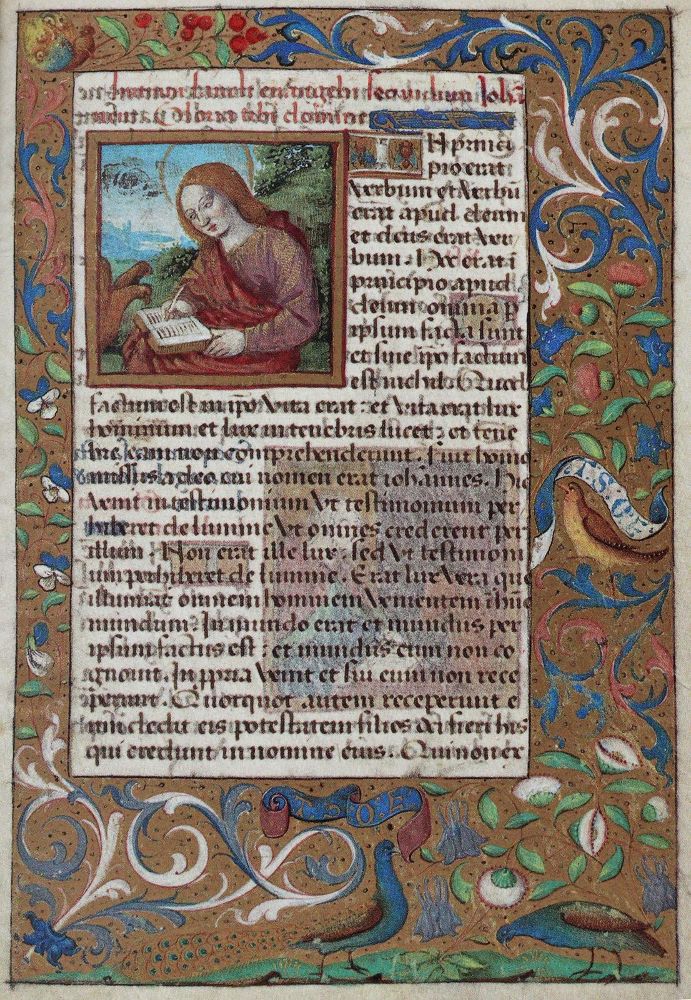 Inicium sancti euvangelii secundum Joh
Gloria tibi domine
N princi
pio erat
verbum et verbū
erat apud deum
et deus erat ver
bum : Hoc erat ī
principio apud
deum omnia p
ipsum facta sunt
et sine ipo factum
est nichil Quod
factum est in ipo vita erat : et vita erat lux
hominum et lux in tenebris lucet : et tene
bre eam non comprehenderunt . Fuit homo
missus a deo cui nomen erat iohannes . Hic
venit in testimonium vt testimonium per
hiberet de lumine vt omnes crederent per
illum . Non erat ille lux : sed vt testimoni
um perhiberet de lumine . Erat lux vera que
illuminat omnem hominem venientem ī hūc
mundum : In mundo erat et mundus per
ipsum factus est : et mundus eum non co
gnouit . In ppria venit et sui eum non rece
perunt . Quotquot autem receperunt e
um dedit eis potestatem filios dei fieri his
qui credunt in nomine eius . Qui non ex